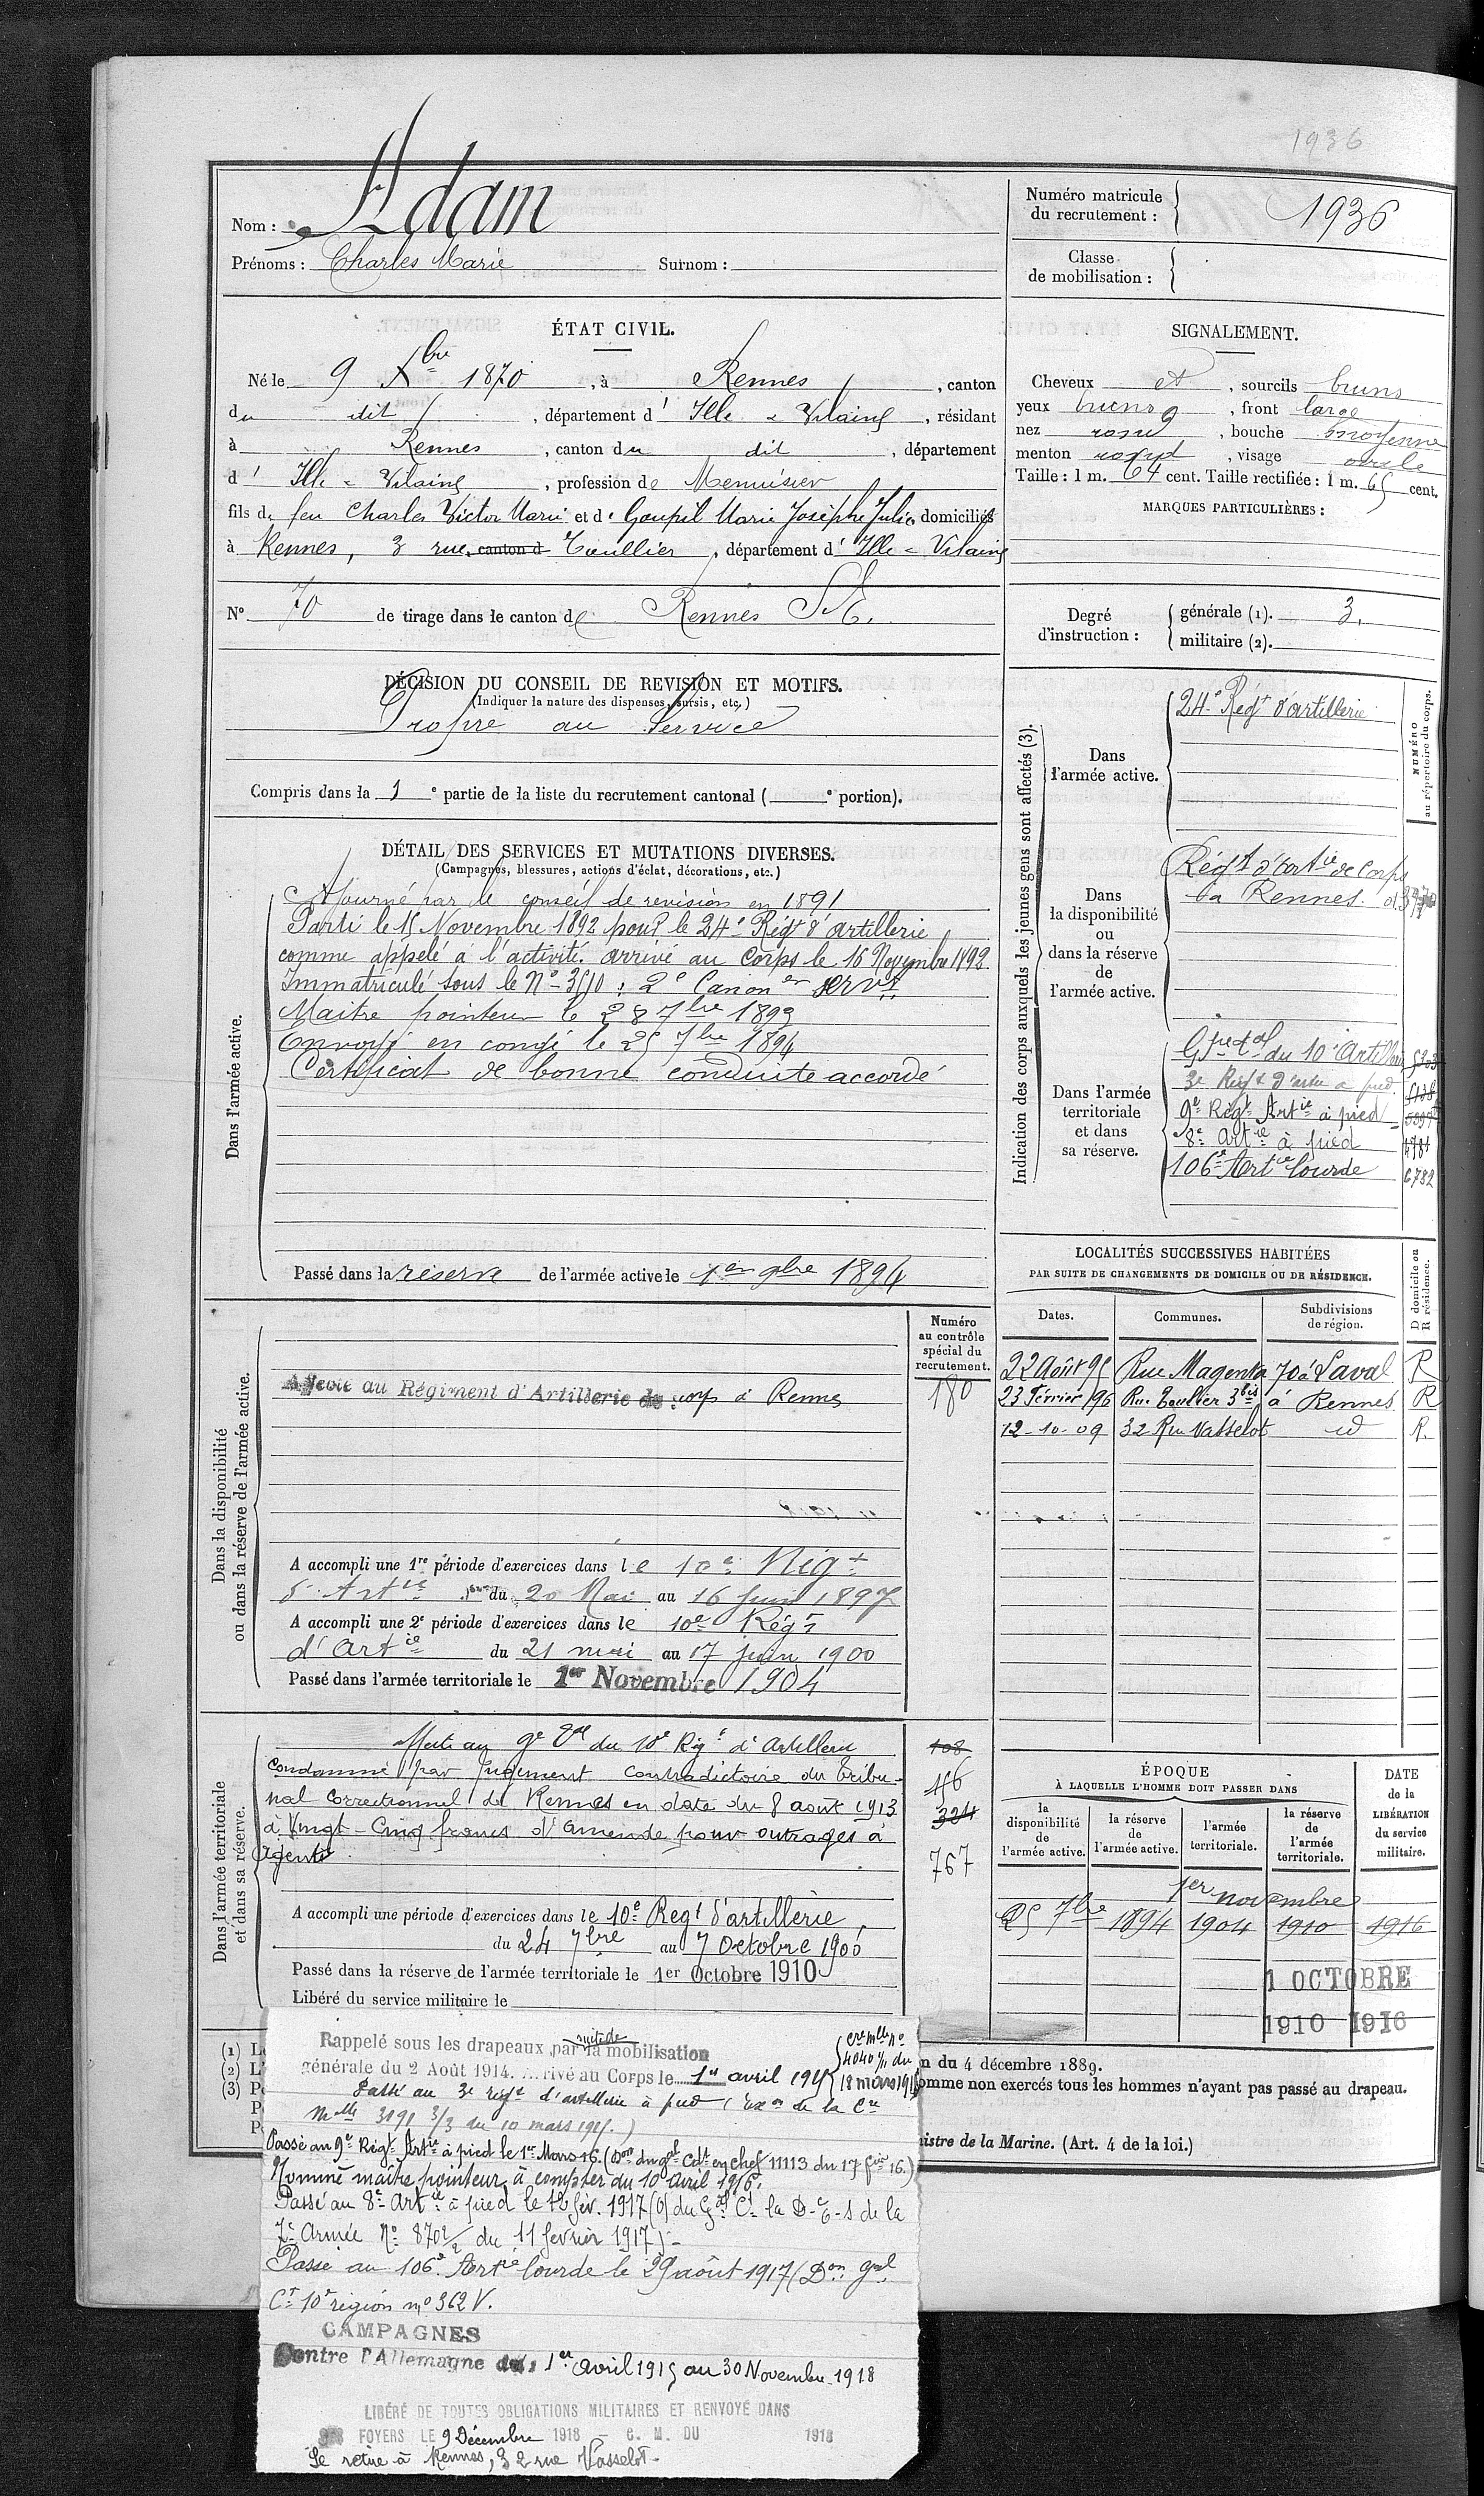 1936
Nom : Adam
Prénoms : Charles Marie Surnom :
Numéro matricule
du recrutement : 1936
Classe
de mobilisation :
ÉTAT CIVIL.
Né le 9 Xbre 1870, à Rennes, canton
du dit, département d' Ille & Vilaine, résidant
à Rennes, canton du dit, département
d' Ille & Vilaine, profession de Menuisier
fils de feu Charles Victor Marie et de Goupil Marie Josèphe Julie domiciliés
à Rennes, 3 rue canton d Toullier, département d' Ille & Vilaine
N° 70 de tirage dans le canton de Rennes S.E.
SIGNALEMENT.
Cheveux et, sourcils bruns
yeux bruns, front large
nez rond, bouche moyenne
menton rond, visage ovale
Taille : 1 m. 64 cent. Taille rectifiée : 1 m. 65 cent.
MARQUES PARTICULIÈRES :
Degré
d'instruction :
générale (1). 3.
militaire (2).
DÉCISION DU CONSEIL DE REVISION ET MOTIFS.
(Indiquer la nature des dispenses, sursis, etc.)
Propre au Service
Compris dans la 1e partie de la liste du recrutement cantonal ( e portion).
DÉTAIL DES SERVICES ET MUTATIONS DIVERSES.
(Campagnes, blessures, actions d'éclat, décorations, etc.)
Dans l'armée active.
Ajourné par le conseil de révision en 1891
Parti le 15 Novembre 1892 pour le 24e Régt d'artillerie
comme appelé à l'activité. arrivé au Corps le 16 Novembre 1892.
Immatriculé sous le N° 3510 : 2e Canoner servt
Maitre pointeur le 28 7bre 1893
Envoyé en congé le 25 7bre 1894
Certificat de bonne conduite accordé
Passé dans la réserve de l'armée active le 1er 9bre 1894
Indication des corps auxquels les jeunes gens sont affectés (3).
NUMÉRO
au répertoire du corps.
Dans
l'armée active.
24e Régt d'artillerie
Dans
la disponibilité
ou
dans la réserve
de
l'armée active.
Régt d'Artie de Corps
à Rennes
Dans l'armée
territoriale
et dans
sa réserve.
Gpe tal du 10e Artillerie
3e Régt d'artie à pied 5138
9e Régt Artie à pied
8e Artie à pied 4781
106e Artie lourde 6782
LOCALITÉS SUCCESSIVES HABITÉES
PAR SUITE DE CHANGEMENTS DE DOMICILE OU DE RÉSIDENCE.
Dates. Communes. Subdivisions
de région.
D domicile ou
R résidence.
22 Août 95 Rue Magenta 70 à Laval R
23 Février 96 Rue Toullier 3bis à Rennes R
12-10-09 32 Rue Vasselot id R.
Dans la disponibilité
ou dans la réserve de l'armée active.
Numéro
au contrôle
spécial du
recrutement.
180
Affecté au Régiment d'Artillerie de corps à Rennes
A accompli une 1re période d'exercices dans le 10e Régt
d'Artie du 20 Mai au 16 Juin 1897
A accompli une 2e période d'exercices dans le 10e Régt
d'Artie du 21 mai au 17 juin 1900
Passé dans l'armée territoriale le 1er Novembre 1904
Dans l'armée territoriale
et dans sa réserve.
Affecté au ge tal du 10e Rgt d'Artillerie
Condamné par Jugement contradictoire du tribu-
nal Correctionnel de Rennes en date du 8 août 1913
à Vingt-Cinq francs d'amende pour outrages à
agents
108
156
324
767
A accompli une période d'exercices dans le 10e Regt d'artillerie
du 24 7bre au 7 Octobre 1906
Passé dans la réserve de l'armée territoriale le 1er Octobre 1910
Libéré du service militaire le
ÉPOQUE
À LAQUELLE L'HOMME DOIT PASSER DANS
DATE
de la
LIBÉRATION
du service
militaire.
la
disponibilité
de
l'armée active.
la réserve
de
l'armée active.
l'armée
territoriale.
la réserve
de
l'armée
territoriale.
1er novembre
25 7bre 1894 1904 1910 1916
1 OCTOBRE
1910 1916
(1)
(2)
(3)
n du 4 décembre 1889.
omme non exercés tous les hommes n'ayant pas passé au drapeau.
nistre de la Marine. (Art. 4 de la loi.)
Rappelé sous les drapeaux par suite de la mobilisation
générale du 2 Août 1914. Arrivé au Corps le 1er avril 1915
Cre mlle n°
4040 1/11 du
18 mars 1915
Passé au 3e régt d'artillerie à pied (Exon de la Cre
Mlle 3191 3/3 du 10 mars 1915.)
Passé au 9e Régt Artie à pied le 1er Mars 16. (Don du gal Cdt en chef 11113 du 17 fév 16.)
Nommé maitre pointeur à compter du 10 avril 1916.
Passé au 8e Artie à pied le 12 fév. 1917 (O) du Gal Ct la D-E-S de la
7e Armée N° 8702/2 du 11 fevrier 1917).
Passé au 106e Artie lourde le 29 août 1917 (Don gal
Ct 10e région n° 362 V.
CAMPAGNES
Contre l'Allemagne du 1er Avril 1915 au 30 Novembre 1918
LIBÉRÉ DE TOUTES OBLIGATIONS MILITAIRES ET RENVOYÉ DANS
SES FOYERS LE 9 Décembre 1918 — C. M. DU 1918
Se retire à Rennes, 32 rue Vasselot.